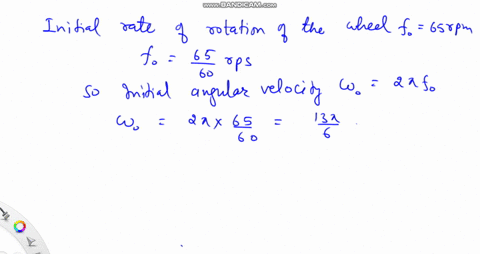 WWW.BANDICAM.COM
Initial rate of rotation of the wheel f₀ = 65 rpm
f₀ = 65/60 rps
So initial angular velocity ω₀ = 2π f₀
ω₀ = 2π × 65/60 = 13π/6